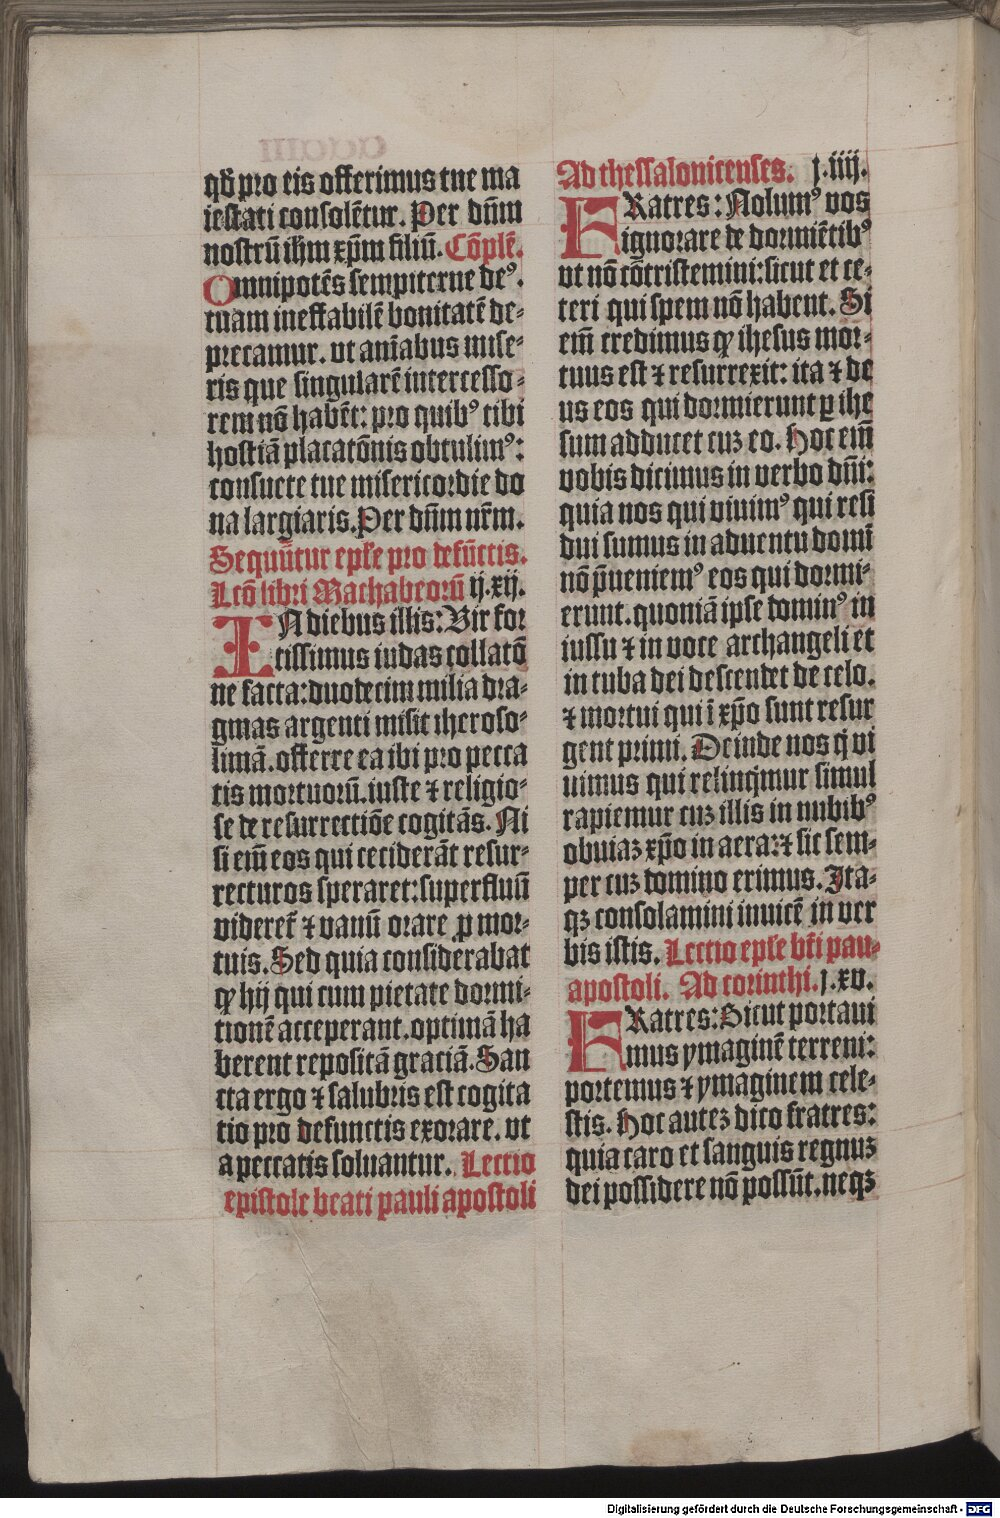 qd̄ pro eis offerimus tue ma
iestati consolētur. Per dn̄m
nostrū ihm xp̄m filiū. Cōplē.
Omnipotēs sempiterne deꝰ.
tuam ineffabilē bonitatē de-
precamur. vt aīabus mise-
ris que singularē intercesso-
rem nō habēt: pro quibꝰ tibi
hostiā placatōnis obtulimꝰ:
consuete tue misericordie do
na largiaris. Per dn̄m nr̄m.
Sequūtur ep̄le pro defūctis.
Lcō libri Machabeorū ij.xij.
IN diebus illis: Vir for
tissimus iudas collatō
ne facta: duodecim milia dra-
gmas argenti misit iheroso-
limā. offerre ea ibi pro pecca
tis mortuorū. iuste ⁊ religio-
se de resurrectiōe cogitās. Ni
si em̄ eos qui ceciderāt resur-
recturos speraret: superfluū
videret̄ ⁊ vanū orare ꝓ mor-
tuis. Sed quia considerabat
ꝙ hij qui cum pietate dormi-
tionē acceperant. optimā ha
berent repositā graciā. San
cta ergo ⁊ salubris est cogita
tio pro defunctis exorare. vt
a peccatis soluantur. Lectio
epistole beati pauli apostoli
Ad thessalonicenses. j.iiij.
FRatres: Nolumꝰ vos
ignorare de dormiētibꝰ
vt nō cōtristemini: sicut et ce-
teri qui spem nō habent. Si
em̄ credimus ꝙ ihesus mor-
tuus est ⁊ resurrexit: ita ⁊ de
us eos qui dormierunt ꝑ ihe
sum adducet cuꝫ eo. Hoc em̄
vobis dicimus in verbo dn̄i:
quia nos qui viuimꝰ qui resi
dui sumus in aduentu domī
nō p̄ueniemꝰ eos qui dormi-
erunt. quoniā ipse dominꝰ in
iussu ⁊ in voce archangeli et
in tuba dei descendet de celo.
⁊ mortui qui ī xp̄o sunt resur
gent primi. Deinde nos q̇ vi
uimus qui relinq̇mur simul
rapiemur cuꝫ illis in nubibꝰ
obuiaꝫ xp̄o in aera: ⁊ sic sem-
per cuꝫ domino erimus. Ita-
qꝫ consolamini inuicē in ver
bis istis. Lectio ep̄le bt̄i pau-
apostoli. Ad corinthi. j.xv.
FRatres: Sicut portaui
mus ymaginē terreni:
portemus ⁊ ymaginem cele-
stis. Hoc auteꝫ dico fratres:
quia caro et sanguis regnuꝫ
dei possidere nō possūt. neqꝫ
Digitalisierung gefördert durch die Deutsche Forschungsgemeinschaft - DFG